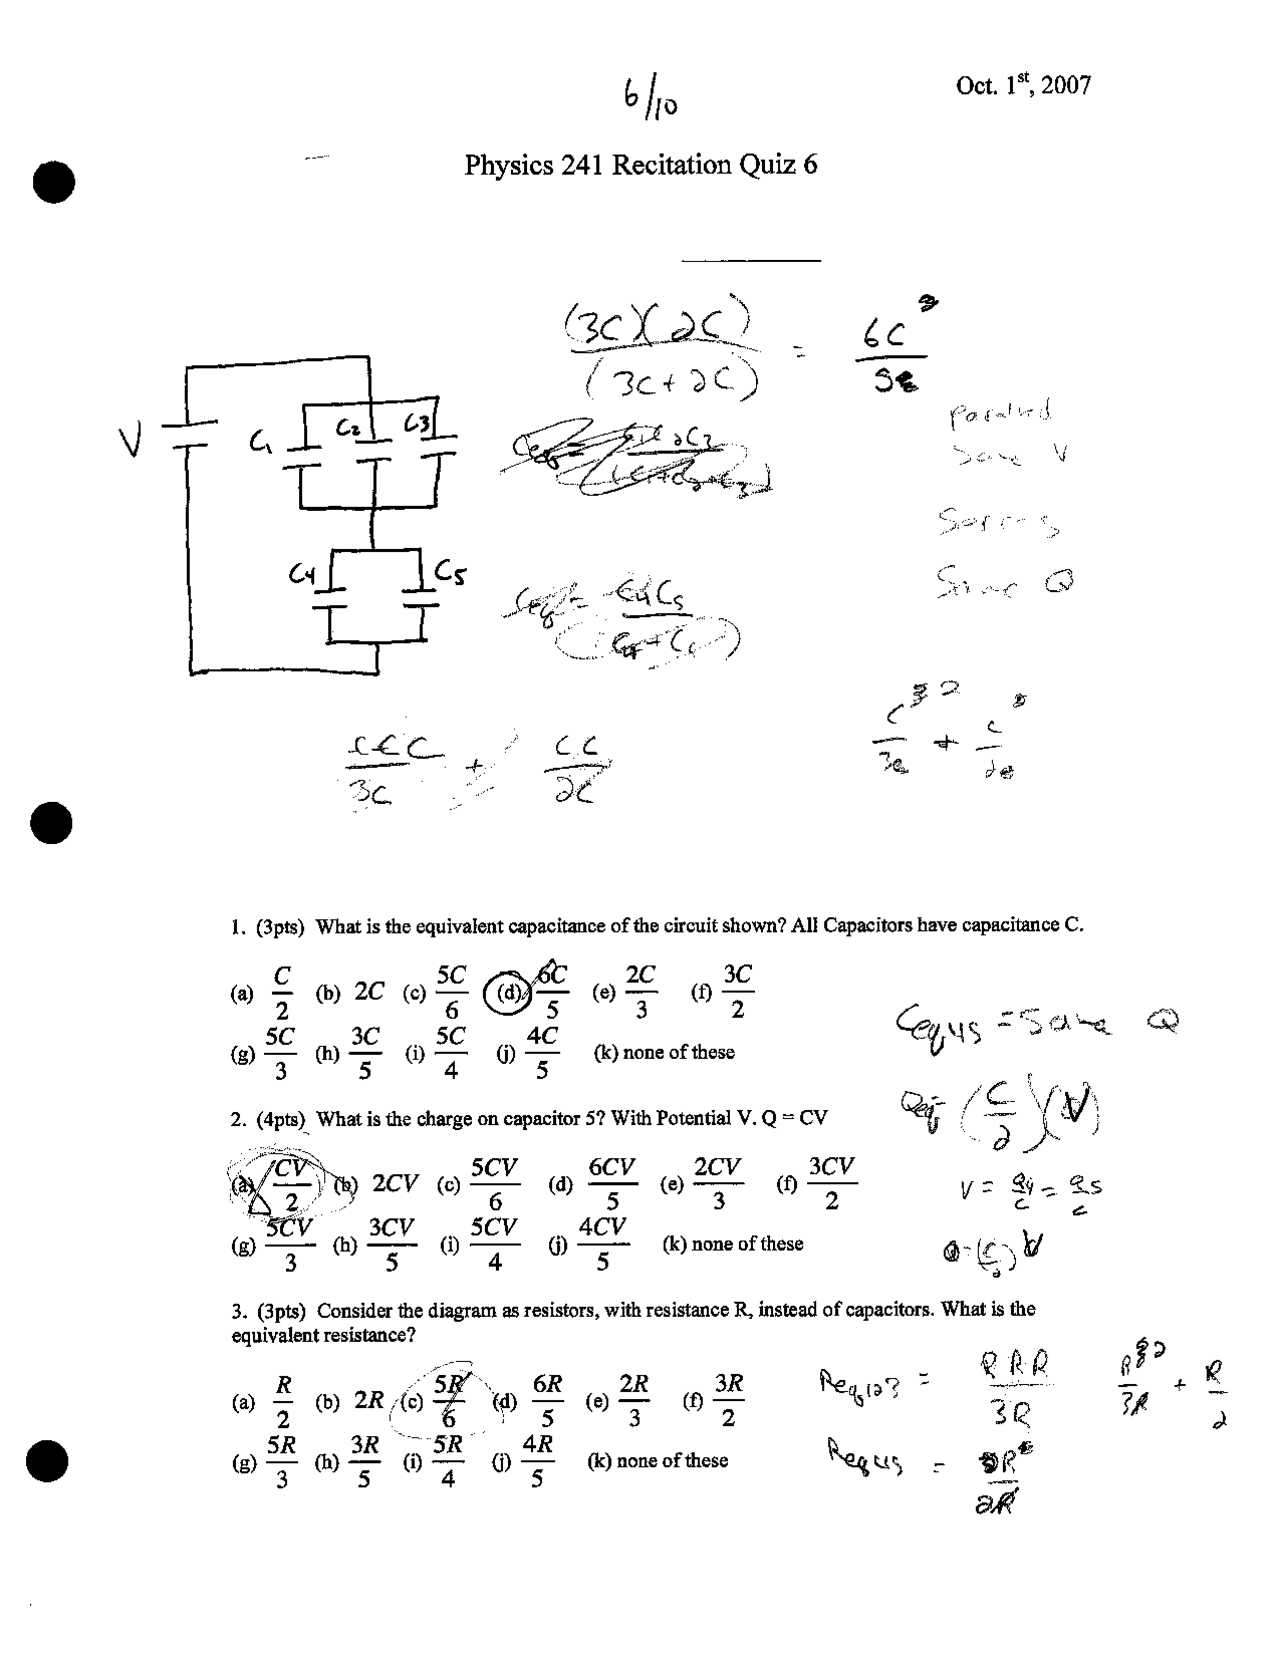 6/10
Oct. 1st, 2007
Physics 241 Recitation Quiz 6
(3C)(2C)
(3C+2C)
=
6C
5
V
C1
C2
C3
Same V
C4
C5
Same Q
3C
+
CC
2C
+
1. (3pts) What is the equivalent capacitance of the circuit shown? All Capacitors have capacitance C.
(a) C/2 (b) 2C (c) 5C/6 (d) 6C/5 (e) 2C/3 (f) 3C/2
(g) 5C/3 (h) 3C/5 (i) 5C/4 (j) 4C/5 (k) none of these
Ceq45 = Same Q
2. (4pts) What is the charge on capacitor 5? With Potential V. Q = CV
Qeq= (C/2)(V)
(a) CV/2 (b) 2CV (c) 5CV/6 (d) 6CV/5 (e) 2CV/3 (f) 3CV/2
V = Q4/C = Q5/C
(g) 5CV/3 (h) 3CV/5 (i) 5CV/4 (j) 4CV/5 (k) none of these
Q=(C/2)V
3. (3pts) Consider the diagram as resistors, with resistance R, instead of capacitors. What is the
equivalent resistance?
(a) R/2 (b) 2R (c) 5R/6 (d) 6R/5 (e) 2R/3 (f) 3R/2
Req123 = RRR/3R
+ R/2
(g) 5R/3 (h) 3R/5 (i) 5R/4 (j) 4R/5 (k) none of these
Req45 =
2R